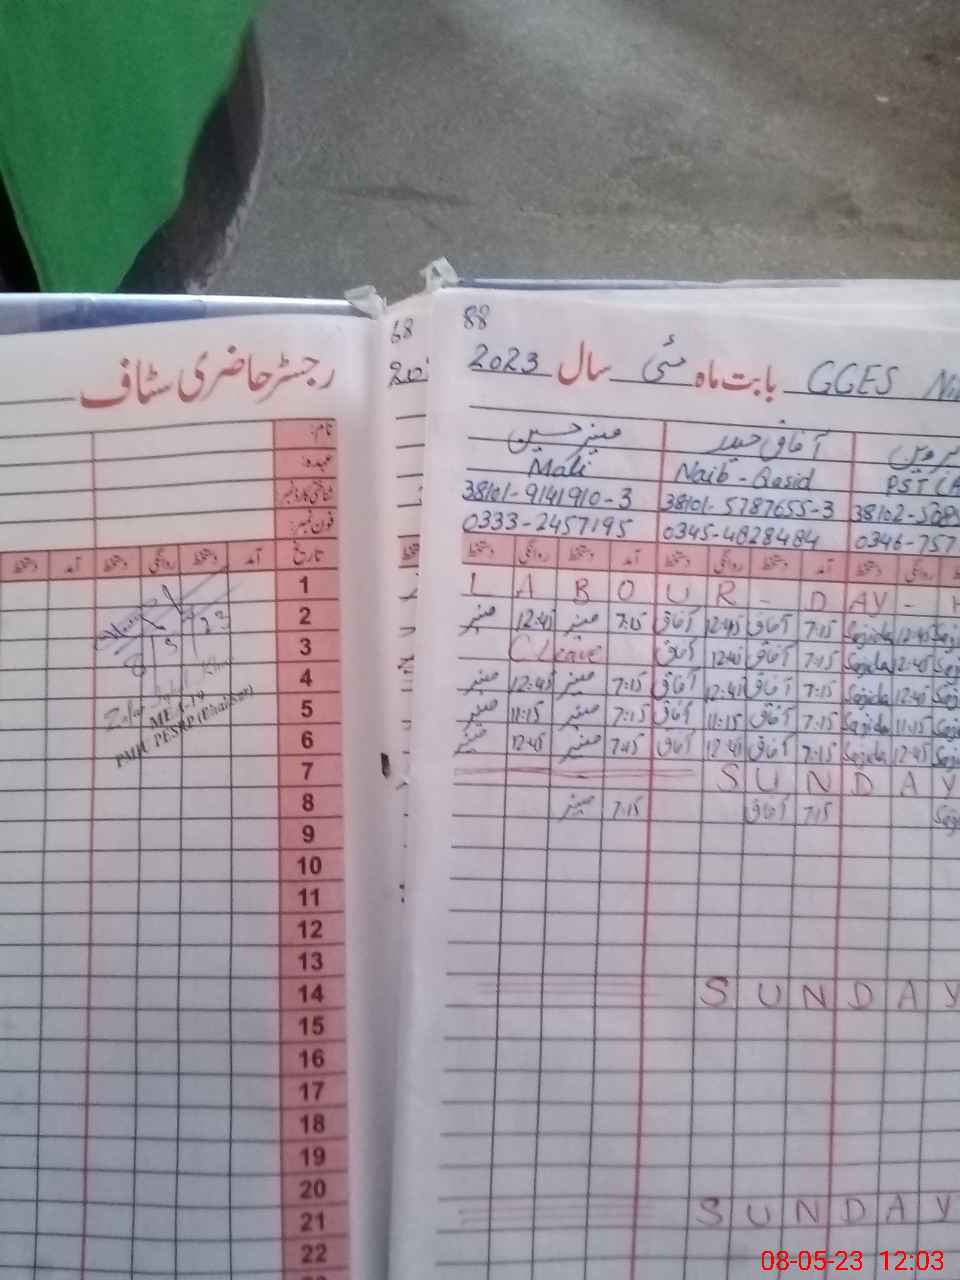 رجسٹر حاضری سٹاف
نام:
عہدہ:
شناختی کارڈ نمبر:
فون نمبر:
دستخط آمد دستخط روانگی دستخط آمد تاریخ
1
2
3
4
5
6
7
8
9
10
11
12
13
14
15
16
17
18
19
20
21
22
8 5 23
MEA-19
PMIU PESRP (Bhakkar)
68
88
GGES بابت ماہ مئی سال 2023
آفاق حیدر
Mali Naib-Qasid PST
38101-9141910-3 38101-5787655-3 38102-
0333-2457195 0345-4828484 0346-757
دستخط روانگی دستخط آمد دستخط روانگی دستخط آمد دستخط روانگی
L A B O U R - D AY - H
12:45 7:15 آفاق 12:45 آفاق 7:15 Sajida 12:45
C Leave آفاق 12:45 آفاق 7:15 Sajida 12:45
12:45 7:15 آفاق 12:45 آفاق 7:15 Sajida 12:45
11:15 7:15 آفاق 11:15 آفاق 7:15 Sajida 11:15
12:45 7:15 آفاق 12:45 آفاق 7:15 Sajida 12:45
S U N D A Y
7:15 آفاق 7:15
S U N D A Y
S U N D A Y
08-05-23 12:03